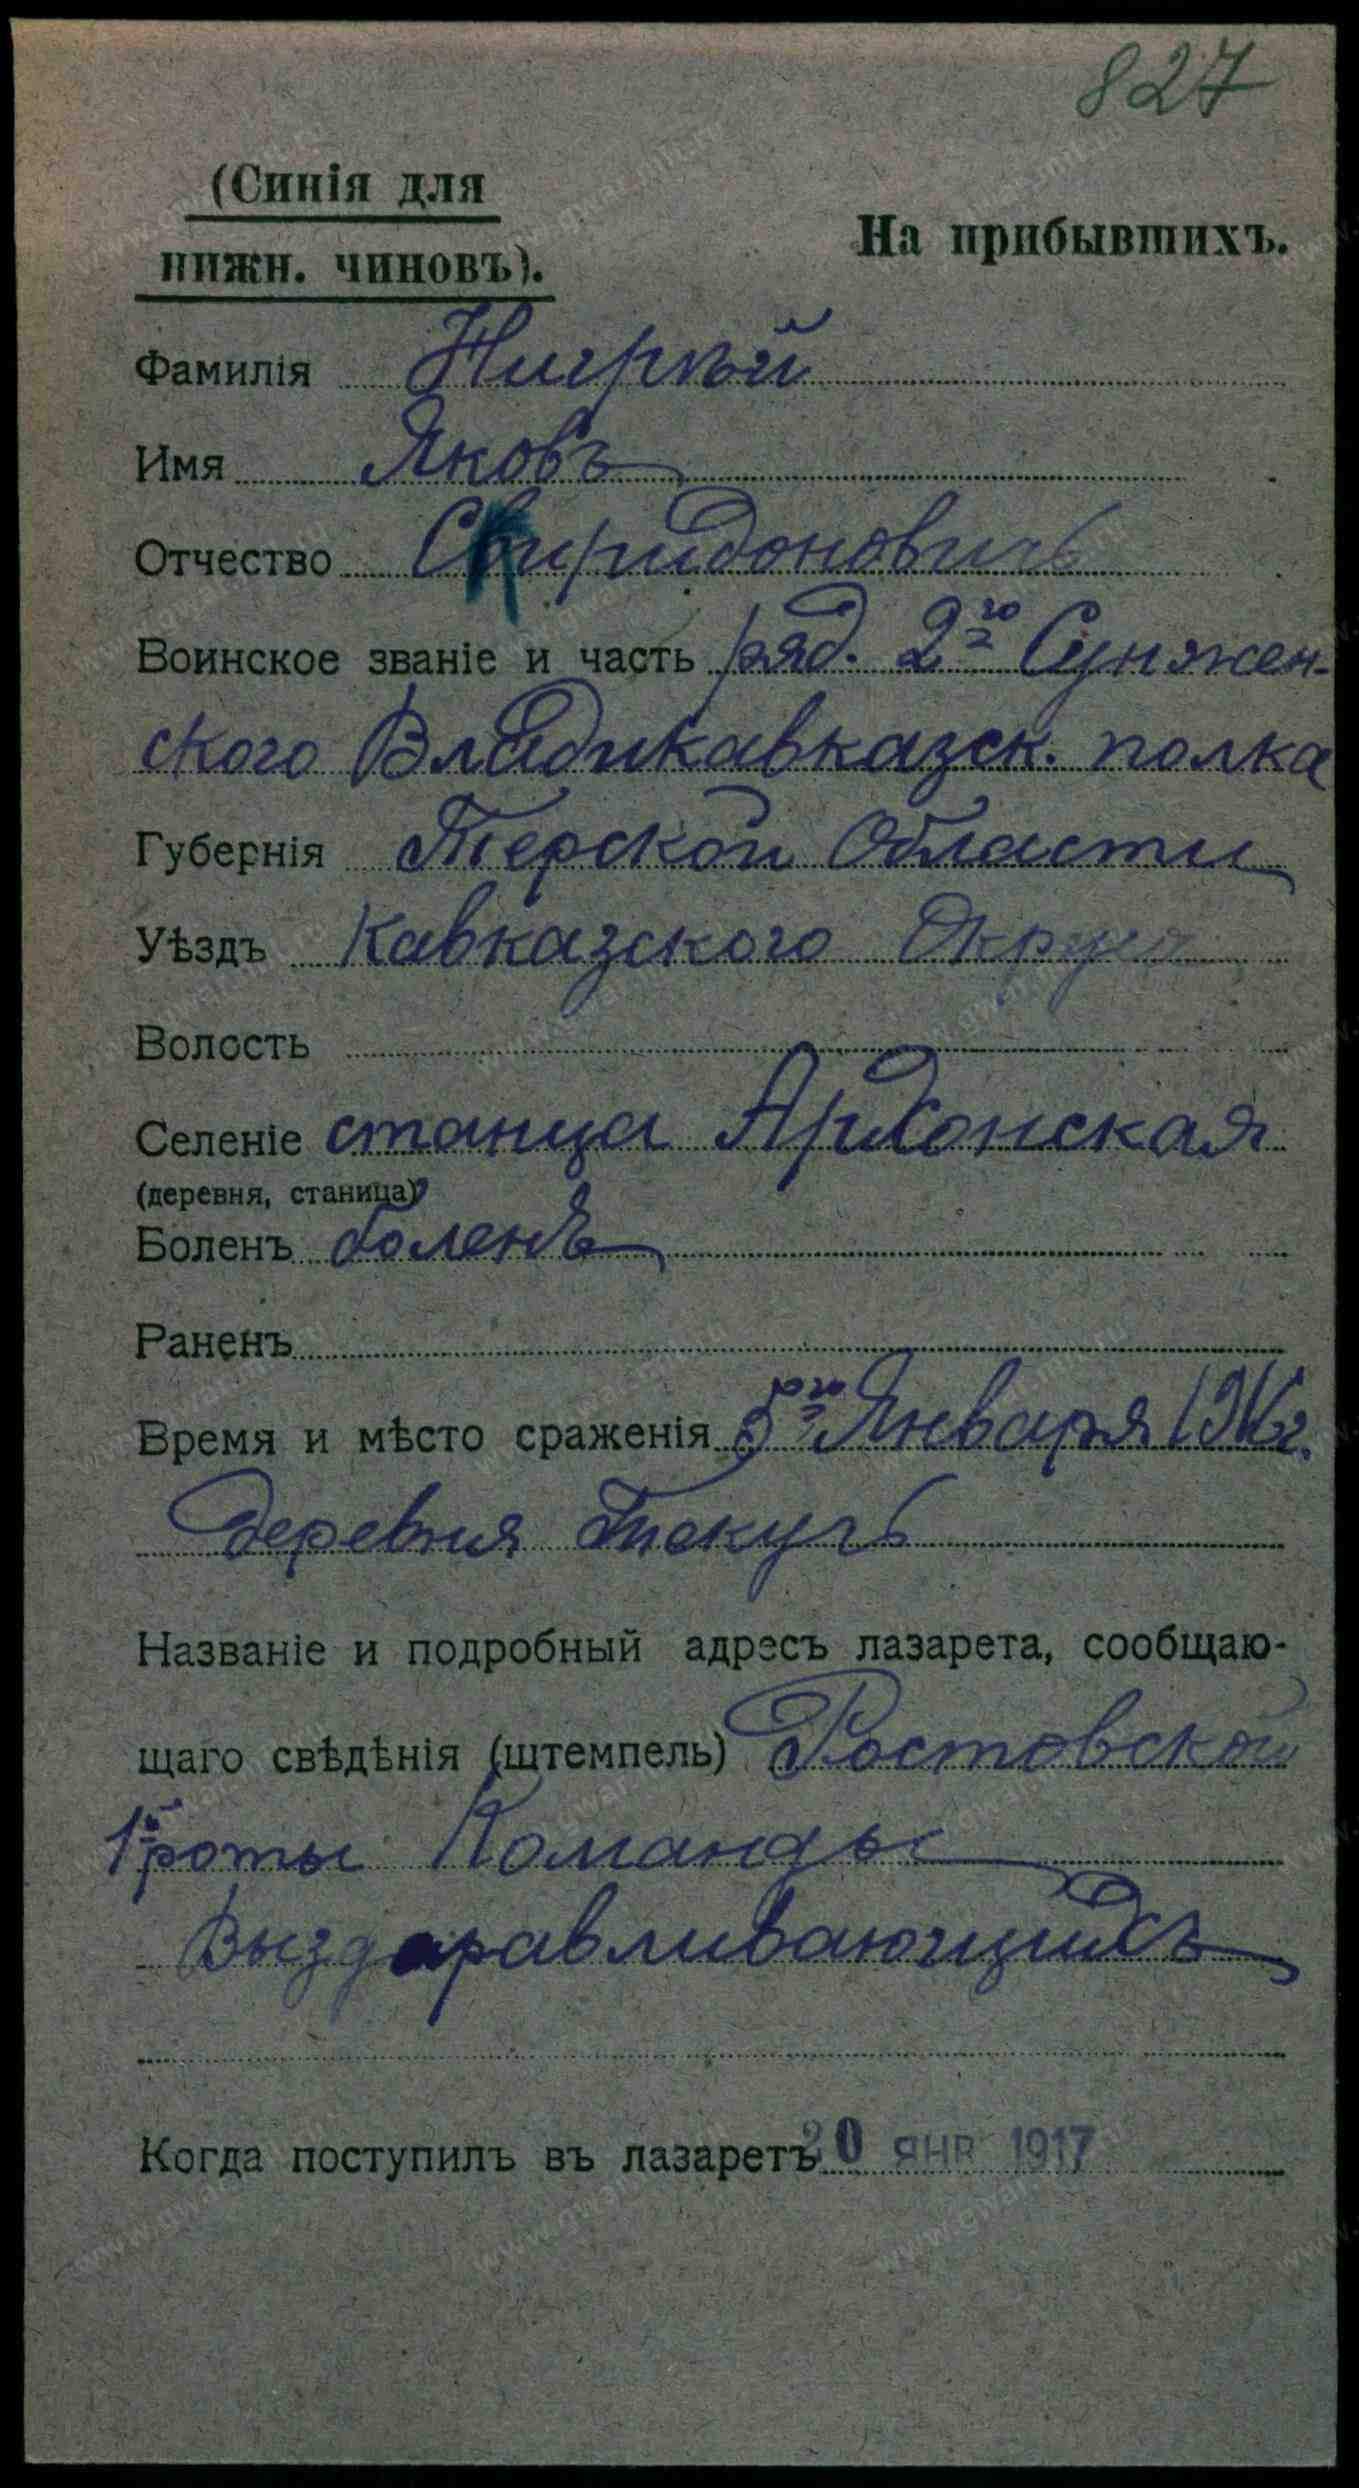 827
(Синія для
нижн. чиновъ).
На прибывшихъ.
Фамилія Нигрѣй
Имя Яковъ
Отчество Спиридоновичъ
Воинское званіе и часть ряд. 2го Сунжен-
ского Владикавказск. полка
Губернія Терской Области
Уѣздъ Кавказского Округа
Волость
Селеніе станца Ардонская
(деревня, станица)
Боленъ боленъ
Раненъ
Время и мѣсто сраженія 5го Января 1916г.
деревня Текучъ
Названіе и подробный адресъ лазарета, сообщаю-
щаго свѣдѣнія (штемпель) Ростовской
1й роты Команды
Выздаравливающихъ
Когда поступилъ въ лазаретъ 20 ЯНВ 1917